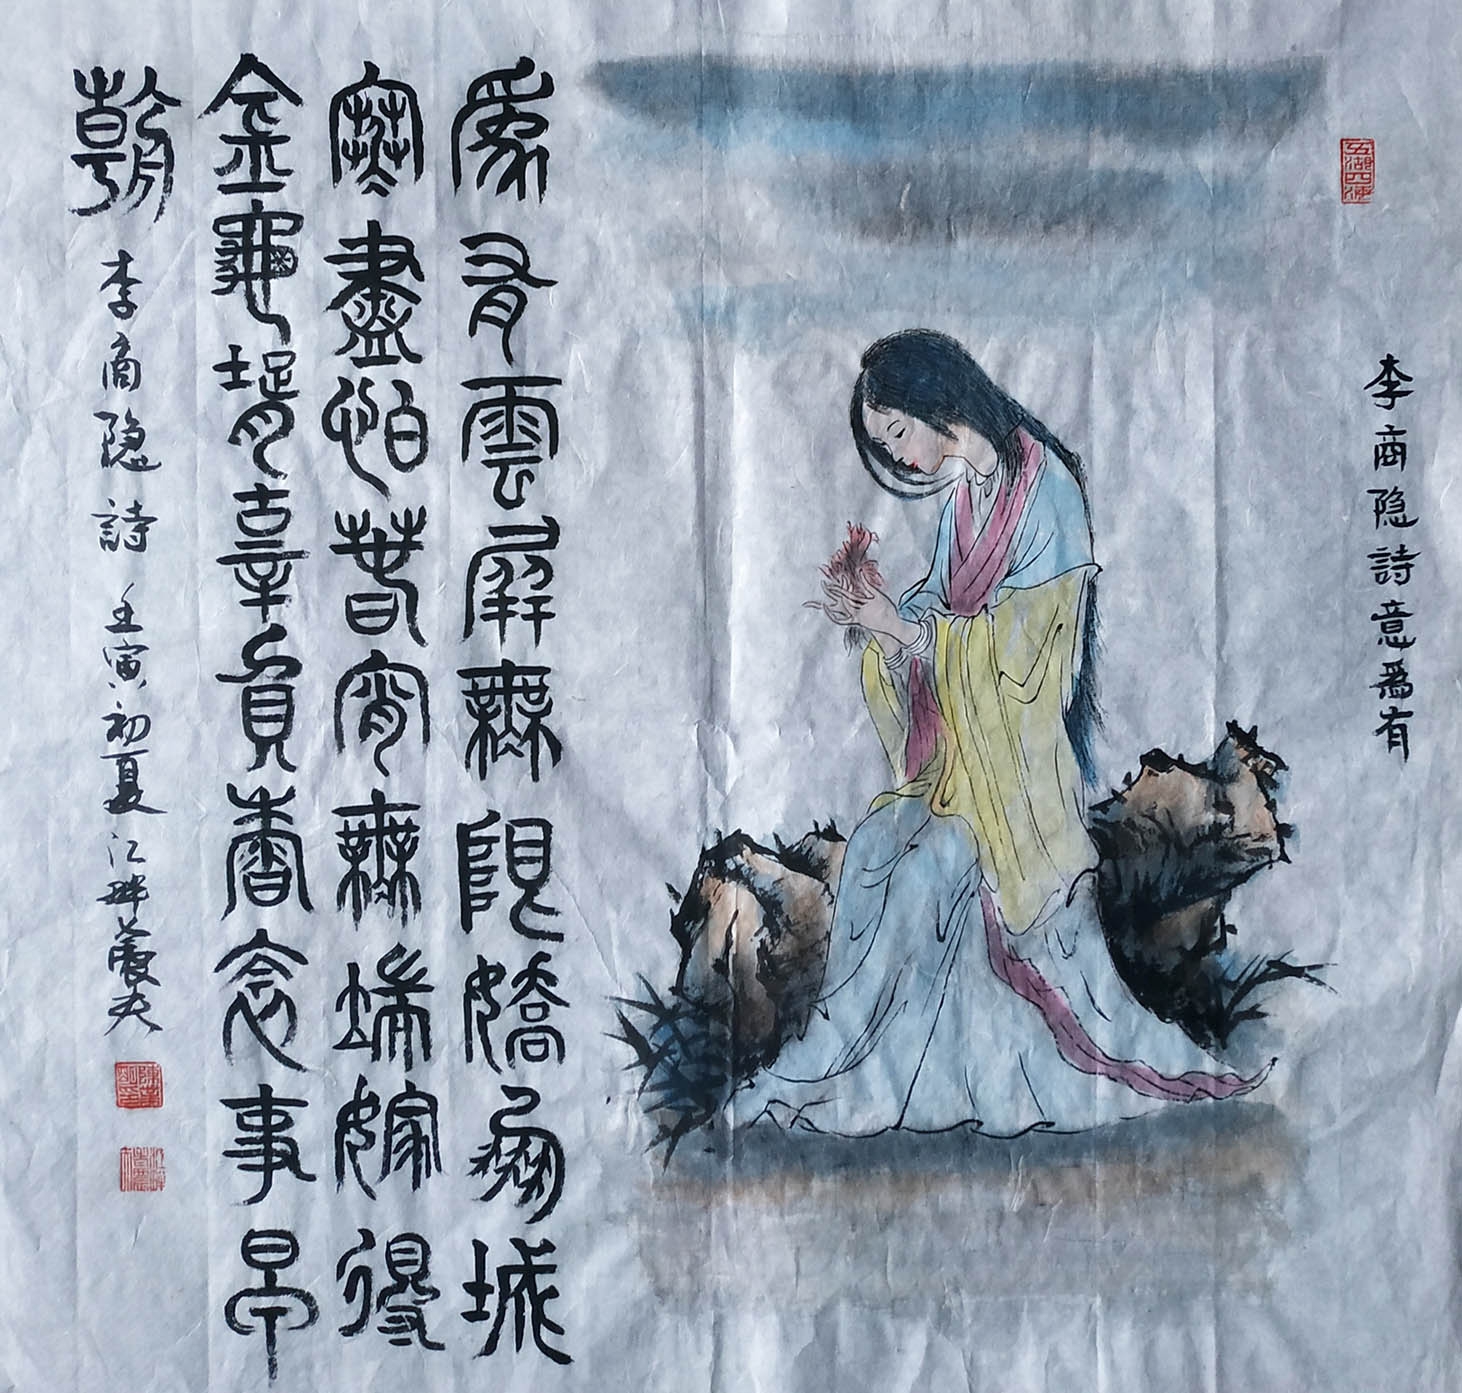 五湖四海
李商隐詩意爲有
爲有雲屏無限嬌鳳城
寒盡怕春宵無端嫁得
金龜壻辜負香衾事早
朝
李商隐詩 壬寅初夏江畔